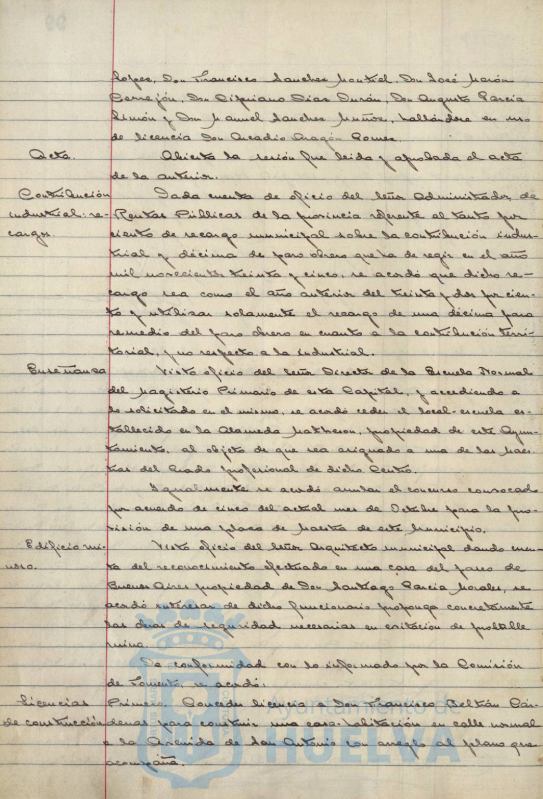 Lopez, Don Francisco Sanchez Montiel, Don José Marón
Cerrejón, Don Cipriano Diaz Durán, Don Augusto Garcia
Simón y Don Manuel Sanchez Muñoz, hallándose en uso
de licencia Don Arcadio Aragón Gomez.
Acta. Abierta la sesión fue leida y aprobada el acta
de la anterior.
Contribución Dada cuenta de oficio del Señor Administrador de
industrial: re- Rentas Públicas de la provincia referente al tanto por
cargos. ciento de recargo municipal sobre la contribución indus-
trial y décima de paro obrero que ha de regir en el año
mil novecientos treinta y cinco, se acordó que dicho re-
cargo sea como el año anterior del treinta y dos por cien-
to y utilizar solamente el recargo de una décima para
remedio del paro obrero en cuanto a la contribución terri-
torial, y no respecto a la industrial.
Enseñanza Visto oficio del Señor Director de la Escuela Normal
del Magisterio Primario de esta Capital, y accediendo a
lo solicitado en el mismo, se acordó ceder el local-escuela es-
tablecido en la Alameda Matheson, propiedad de este Ayun-
tamiento, al objeto de que sea asignado a una de las Maes-
tras del Grado profesional de dicho Centro.
Igualmente se acordó anular el concurso convocado
por acuerdo de cinco del actual mes de Octubre para la pro-
visión de una plaza de Maestra de este Municipio.
Edificio rui- Visto oficio del Señor Arquitecto municipal dando cuen-
noso. ta del reconocimiento efectuado en una casa del paseo de
Buenos Aires propiedad de Don Santiago Garcia Morales, se
acordó interesar de dicho funcionario proponga concretamente
las obras de seguridad necesarias en evitación de posible
ruina.
De conformidad con lo informado por la Comisión
de Fomento, se acordó:
Licencias Primero. Conceder licencia a Don Francisco Beltrán Cár-
de construcción denas para construir una casa-habitación en calle normal
a la Avenida de San Antonio con arreglo al plano que
acompaña.
Ayuntamiento de
HUELVA